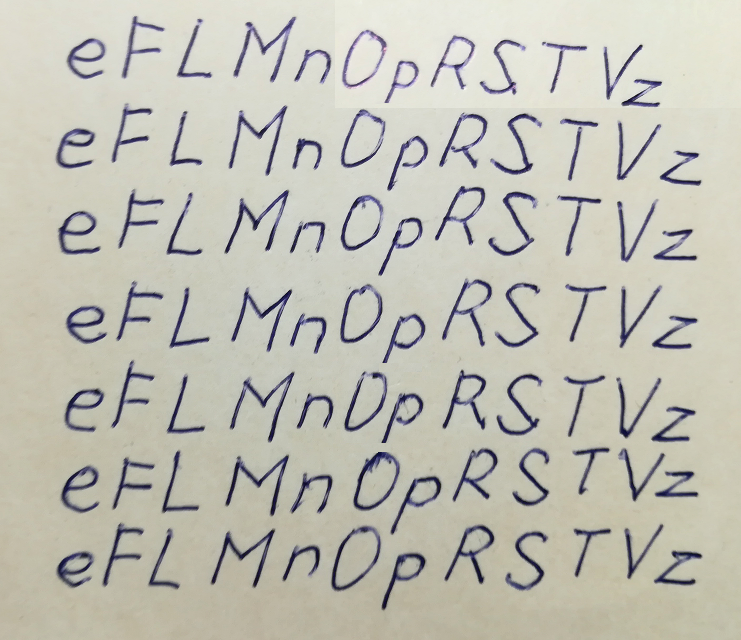 eFLMnOpRSTVz
eFLMnOpRSTVz
eFLMnOpRSTVz
eFLMnOpRSTVz
eFLMnOpRSTVz
eFLMnOpRSTVz
eFLMnOpRSTVz